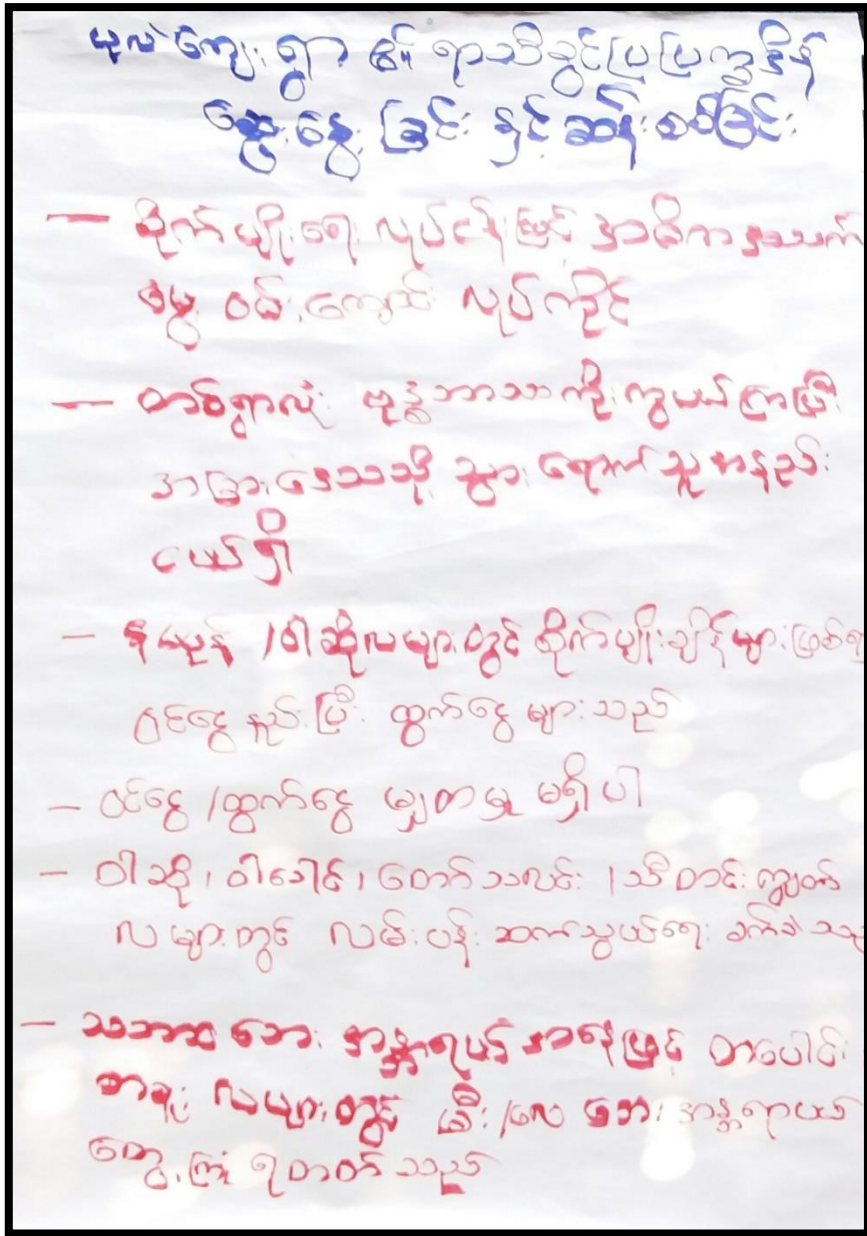 ယုလဲကျေးရွာ ၏ ရာသီခွင်ပြ ပြက္ခဒိန်
ဆွေးနွေး ခြင်း နှင့် ဆန်းစစ်ခြင်း
— စိုက်ပျိုးရေး လုပ်ငန်းဖြင့် အဓိကအသက်
မွေး ဝမ်းကျောင်း လုပ်ကိုင်
— တစ်ရွာလုံး ဗုဒ္ဓဘာသာကိုးကွယ်ကြပြီး
အခြားဒေသသို့ သွားရောက်သူ အနည်း
ငယ်ရှိ
— နယုန် /ဝါဆိုလများတွင် စိုက်ပျိုးချိန်များဖြစ်၍
ဝင်ငွေနည်းပြီး ထွက်ငွေများသည်
— ဝင်ငွေ /ထွက်ငွေ မျှတမှု မရှိပါ
— ဝါဆို၊ ဝါခေါင်၊ တော်သလင်း /သီတင်းကျွတ်
လများတွင် လမ်းပန်းဆက်သွယ်ရေး ခက်ခဲသည်
— သဘာဝဘေး အန္တာရယ် အနေဖြင့် တပေါင်း
တန်ခူး လများတွင် မီး/လေဘေး အန္တာရာယ်
တွေ့ကြုံ ရတတ်သည်